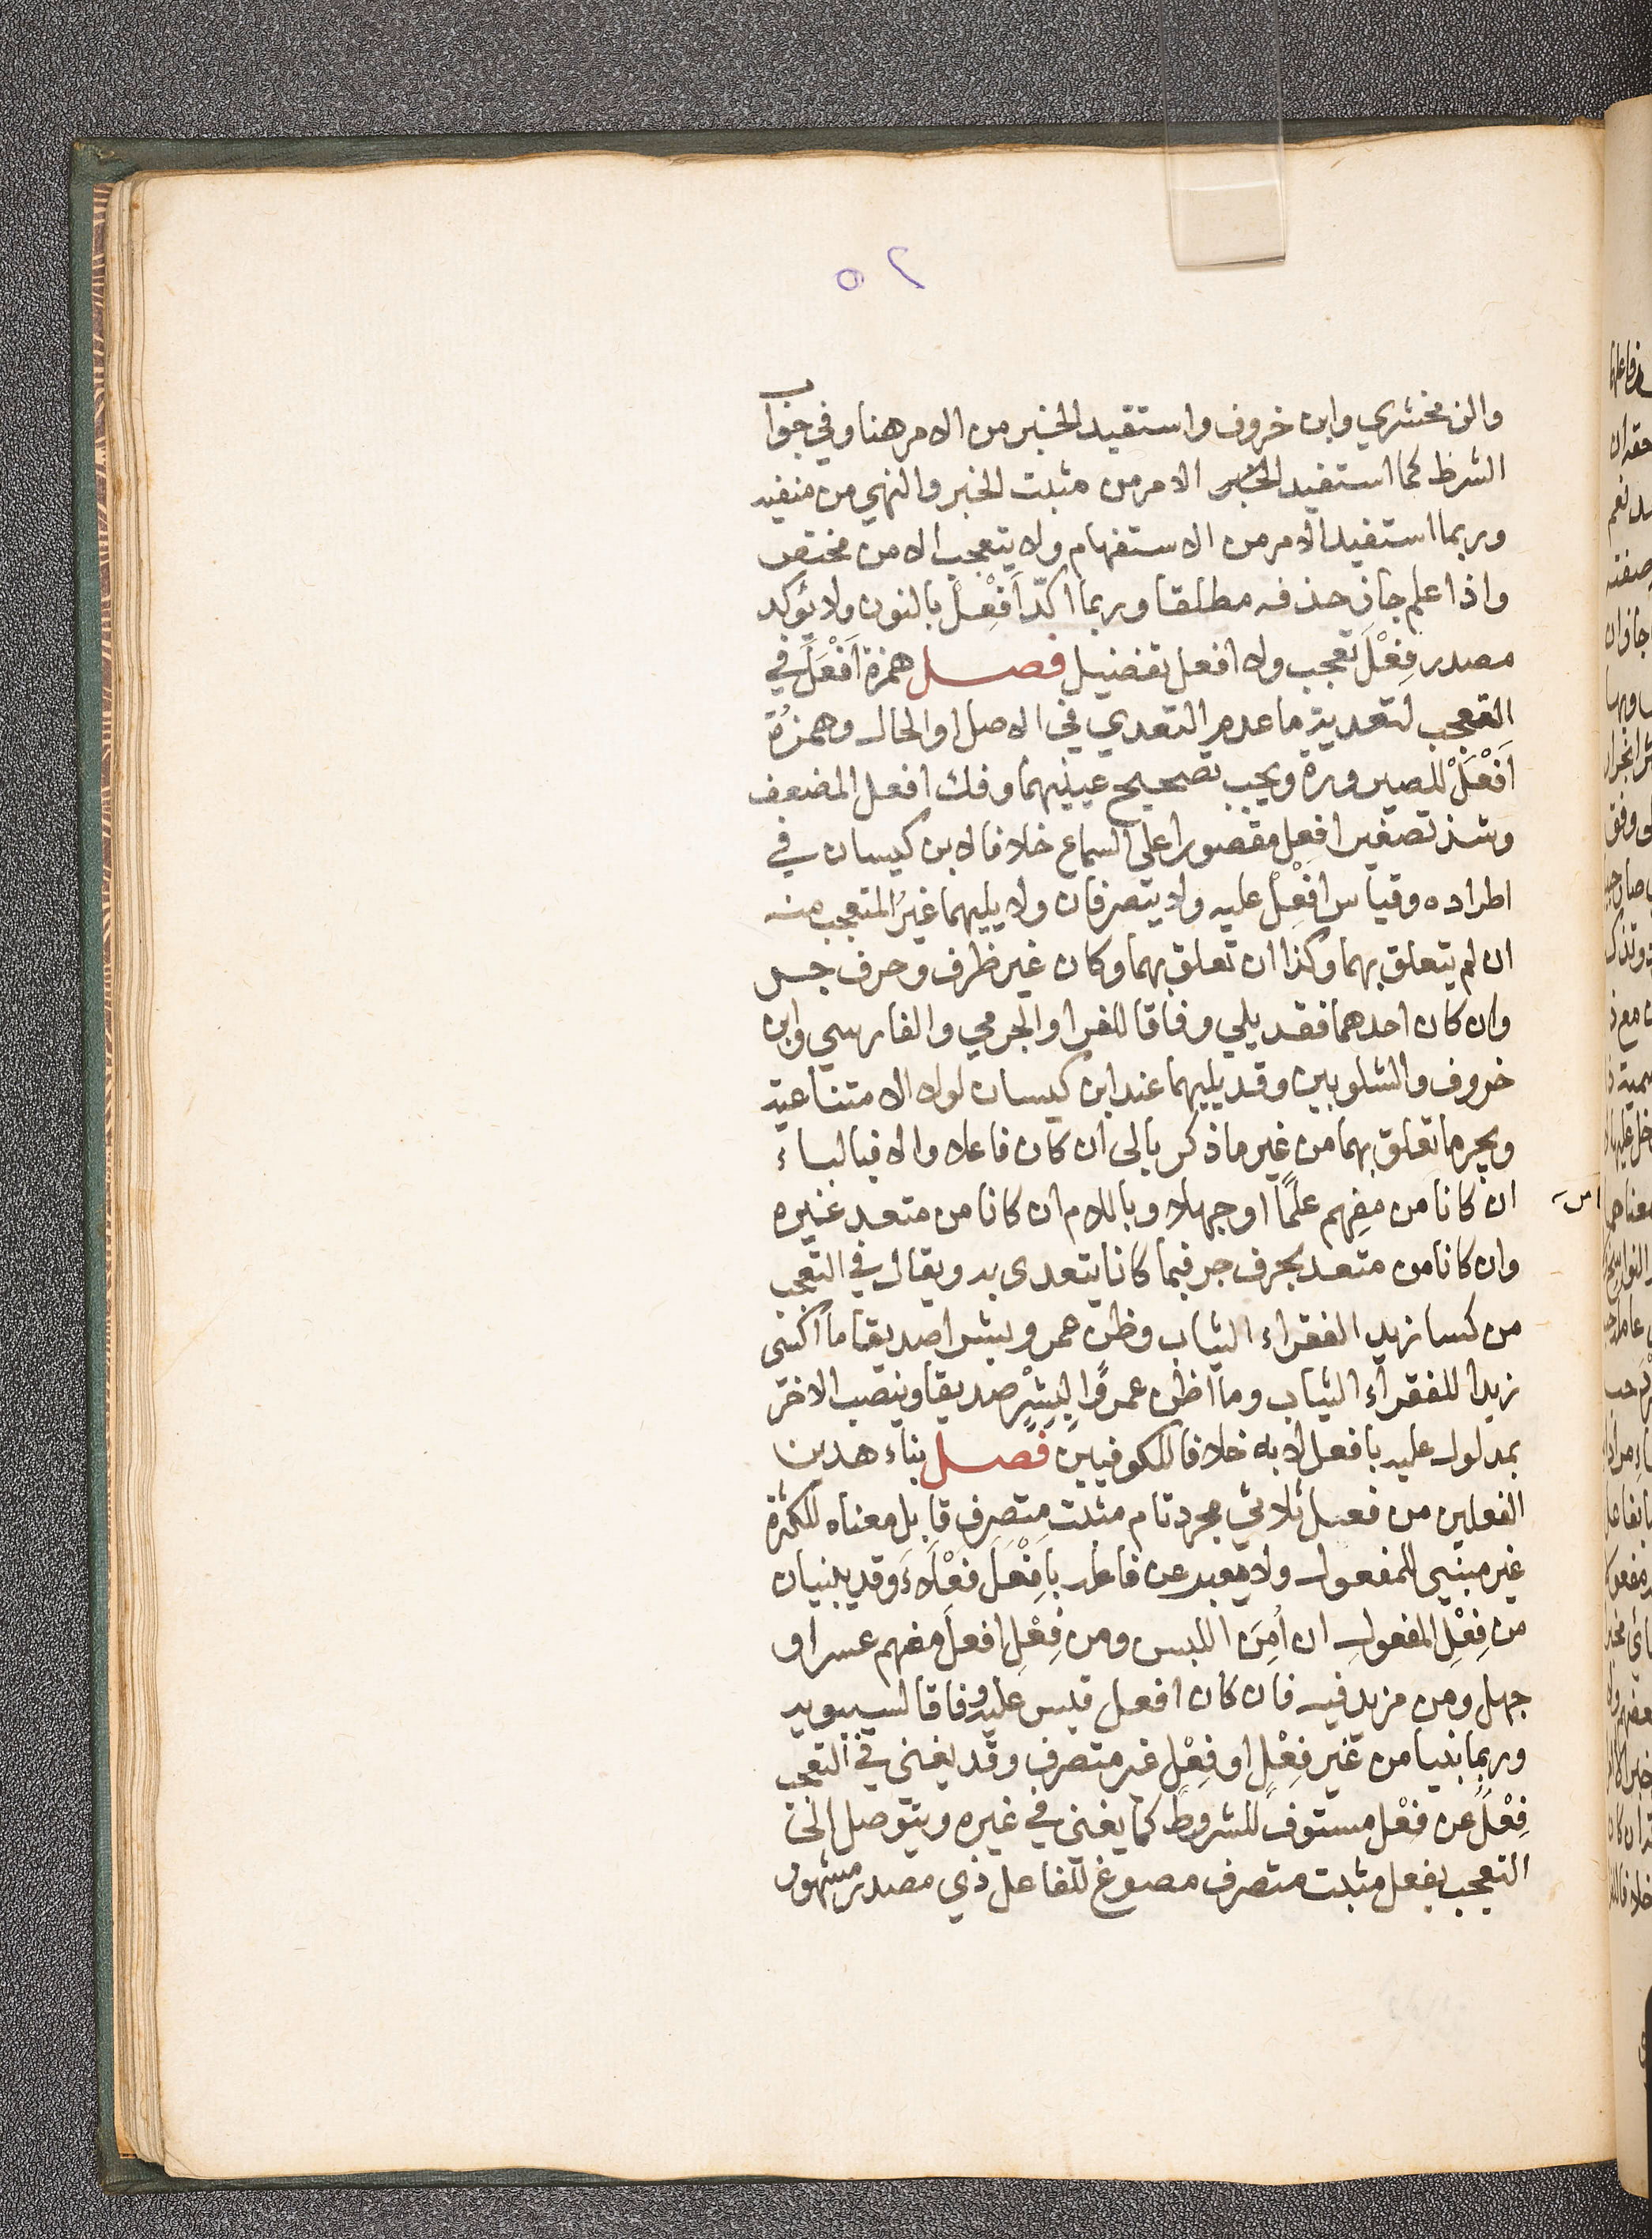 ٥٢
والزمخشري وابن خروف واستفيد الخبر من الامر هنا وفي جواب
الشرط كما استفيد الخبر الامر من مثبت الخبر والنهي من منفيه
وربما استفيد الامر من الاستفهام ولا يتعجب الا من مختص
واذا علم جاز حذفه مطلقا وربما اكّد اَفْعِلْ بالنون ولا يؤكد
مصدر فِعْلَ تعجب ولا افعل تفضيل فصل همزة اَفْعَلَ في
التعجب لتعدية ما عدم التعدي في الاصل او الحال وهمزةُ
اَفْعِلْ للصيرورة ويجب تصحيح عينيهما وفك افعل المضعف
وشذ تصغير افعل مقصورا على السماع خلافا لابن كيسان في
اطراده وقياس افْعِلْ عليه ولا يتصرفان ولا يليهما غيرُ المتعجب منه
ان لم يتعلق بهما وكذا ان تعلق بهما وكان غير ظرف وحرف جر
وان كان احدهما فقد يلي وفاقا للفرا والجرمي والفارسي وابن
خروف والشلوبين وقد يليهما عند ابن كيسان لولا الامتناعية
ويجر ما تعلق بهما من غير ما ذكر بالى ان كان فاعلا والا فبالباء
ان كانا من مفهم علمًا او جهلا وباللام ان كانا من متعد غيره
وان كانا من متعد بحرف جر فبما كانا يتعدى به ويقال في التعجب
من كسا زيد الفقراء الثياب وظن عمرو بشرا صديقا ما اكسى
زيدا للفقراء الثياب وما اظن عمروًا لبِشْرٍ صديقا وينصب الاخر
بمدلول عليه بافعل لا به خلافا للكوفيين فصل بناء هذين
الفعلين من فعل ثلاثي مجرد تام مثبت متصرف قابل معناه للكثرة
غير مبني للمفعول ولا معبر عن فاعله باَفْعَل فَعْلَاءَ وقد يبنيان
من فِعْلِ المفعولِ ان اُمِنَ اللبس ومن فِعْلِ افعلَ مفهم عسر او
جهل ومن مزيد فيه فان كان افعل قيس عليه وفاقا لسيبويه
وربما بنيا من غير فِعْلٍ او فِعْلٍ غير متصرف وقد يغني في التعجب
فِعْلٌ عن فعْل مستوفٍ للشروط كما يغني في غيره ويتوصل الى
التعجب بفعل مثبت متصرف مصوغ للفاعل ذي مصدر مشهور